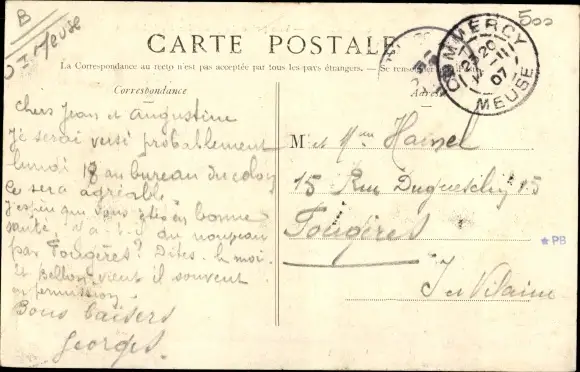 B
Meuse
500
CARTE POSTALE
La Correspondance au recto n'est pas acceptée par tous les pays étrangers. — Se rens
Correspondance
Adresse
COMMERCY
20
07
MEUSE
Chers Jean et Augustine
je serai versé probablement
lundi 18 au bureau du colo
ce sera agréable.
J'espère que vous êtes en bonne
santé. Y a-t-il du nouveau
par Fougères? Dites-le moi.
Et Bellon vient il souvent
en permission
Bons baisers
Georges.
M et Mme Hamel
15 Rue Duguesclin 15
Fougères
Ile et Vilaine
★ PB